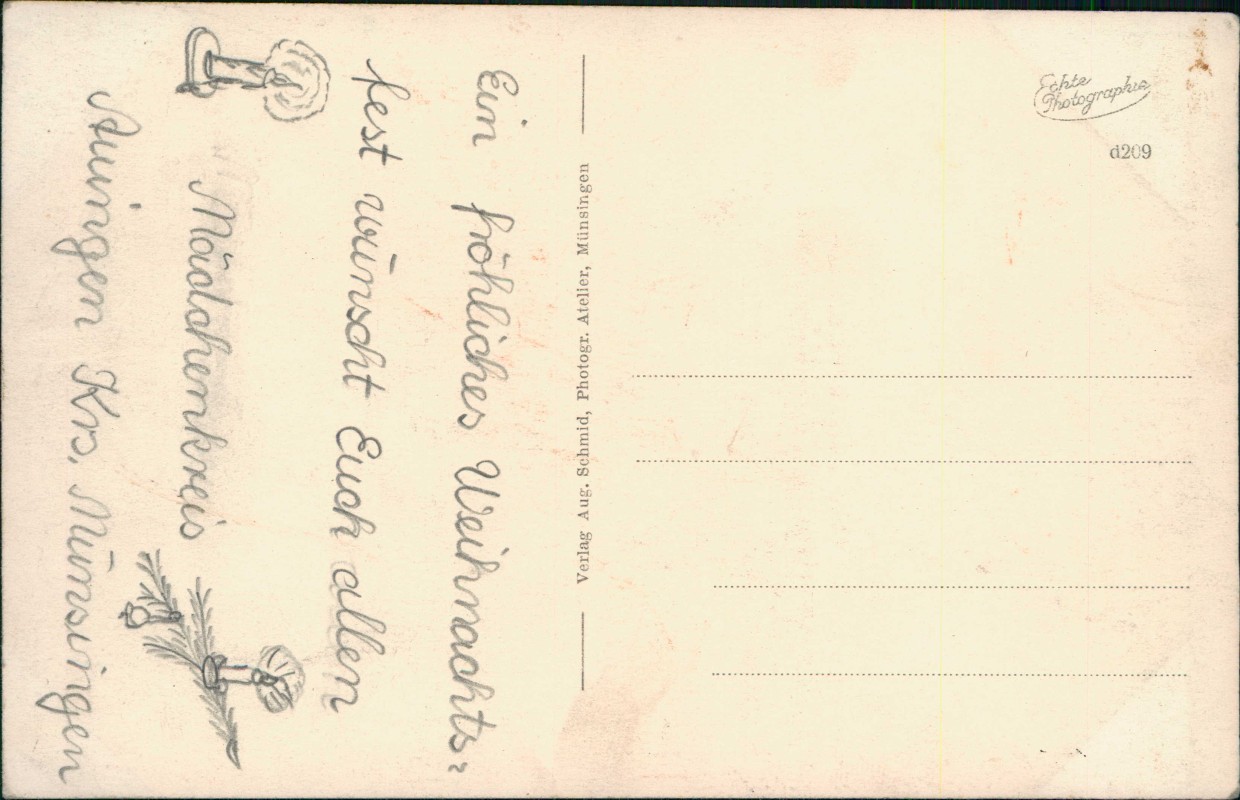 Ein fröhliches Weihnachts=
fest wünscht Euch allen
Mädchenkreis
Auingen Krs. Münsingen
Verlag Aug. Schmid, Photogr. Atelier, Münsingen
Echte
Photographie
d209